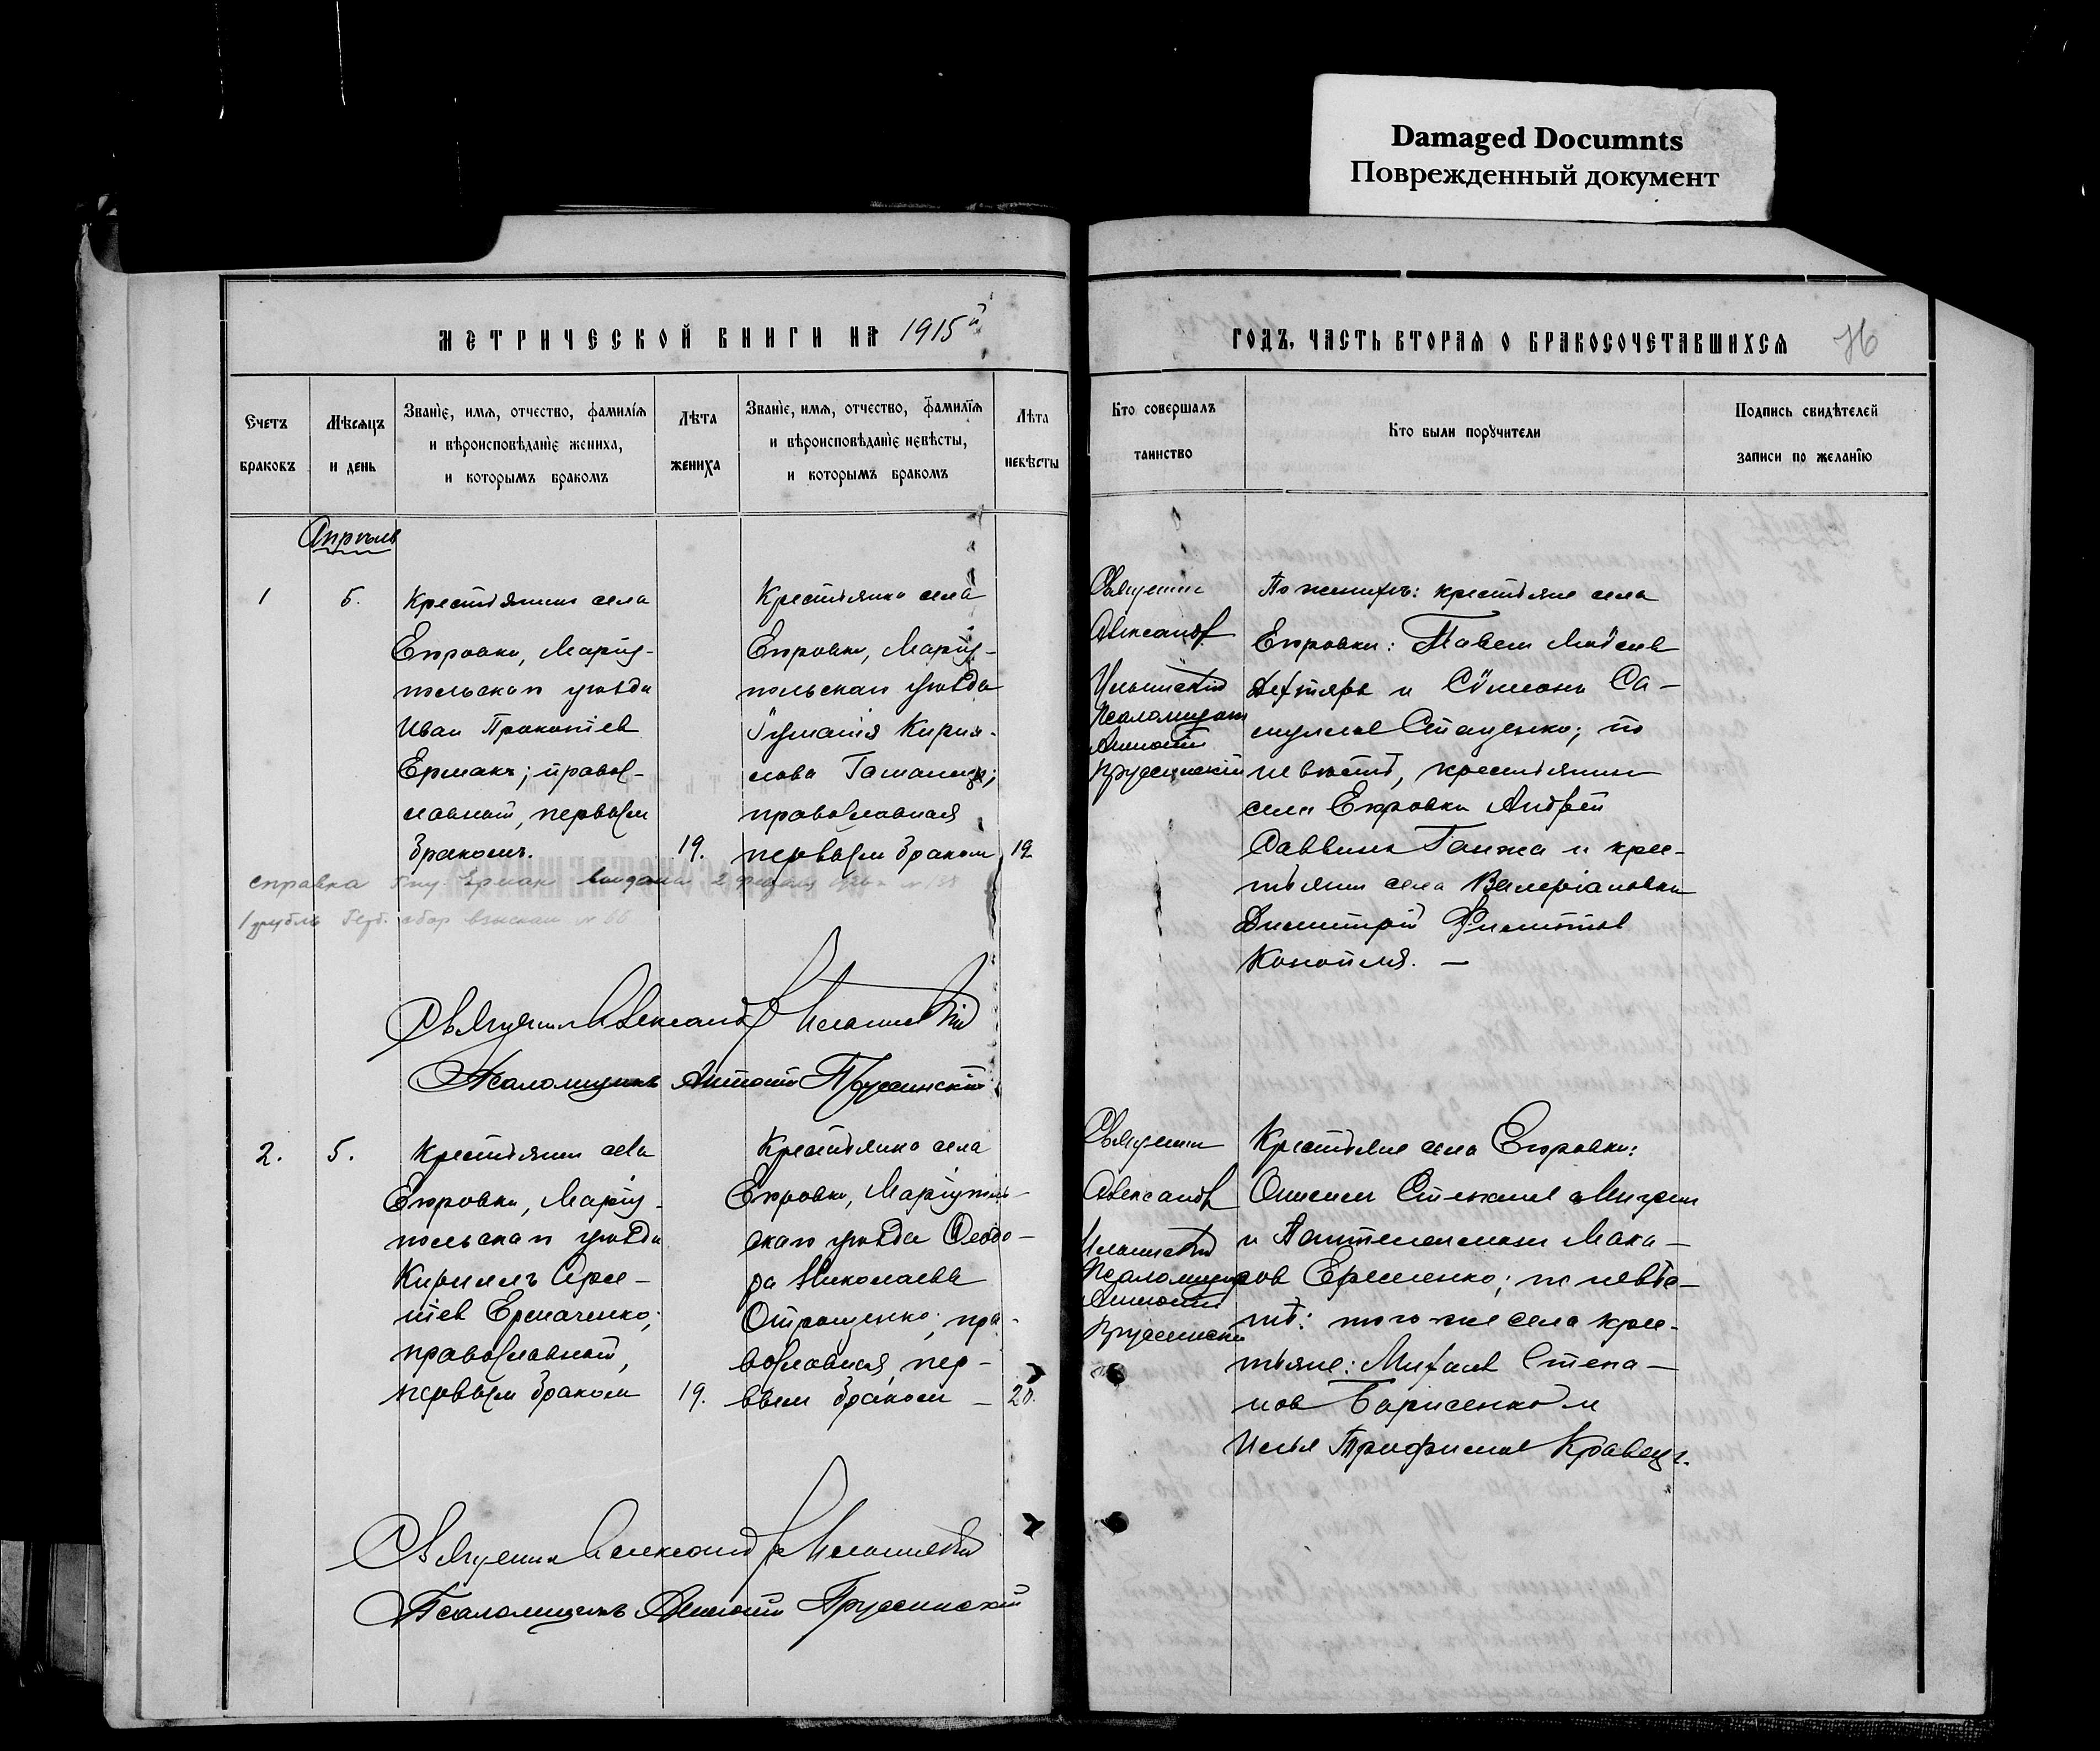 Damaged Documnts
Поврежденный документ
МЕТРИЧЕСКОЙ КНИГИ НА 1915й
ГОДЪ, ЧАСТЬ ВТОРАЯ О БРАКОСОЧЕТАВШИХСЯ
Счетъ
браковъ
Мѣсяцъ
и день
Званіе, имя, отчество, фамилія
и вѣроисповѣданіе жениха,
и которымъ бракомъ
Лѣта
жениха
Званіе, имя, отчество, фамилія
и вѣроисповѣданіе невѣсты,
и которымъ бракомъ
Лѣта
невѣсты
Кто совершалъ
таинство
Кто были поручители
Подпись свидѣтелей
записи по желанію
Апрѣль
1
5.
Крестьянин села
Егоровки, Маріу-
польскаго уѣзда
Иван Прокопіев
Ермакъ; право-
славный, первым
бракомъ.
19.
Крестьянка села
Егоровки, Маріу-
польскаго уѣзда
Кирил-
лова
православная
первым браком
19
Священник
Александр
Псаломщик
Антоній
По женихѣ: крестьяне села
Егоровки: Павел
Дехтярь и Сѵмеонъ Са-
Стаценко; по
невѣстѣ, крестьянин
села Егоровки Андрей
Саввинъ Ганжа и крес-
тьянин села Валеріановки
Димитрій
Конопля. —
справка Ермак выдана 2
1 рубль Герб. сбор взыскан № 66
Священник Александр
Псаломщикъ Антоній
2.
5.
Крестьянин села
Егоровки, Маріу-
польскаго уѣзда
Кириллъ Арсе-
ніев Ермаченко;
православный,
первым браком
19.
Крестьянка села
Егоровки, Маріуполь-
скаго уѣзда Ѳеодо-
ра Николаева
Отрощенко, пра-
вославная, пер-
вым браком —
20.
Священник
Александр
Псаломщик
Антоній
Крестьяне села Егоровки:
и Пантелеимон Мака-
ров Еременко; по невѣс-
тѣ: того же села крес-
тьяне: Михаил Степа-
нов Борисенко и
Илья Трофимов Кравецъ.
Священник Александр
Псаломщикъ Антоній